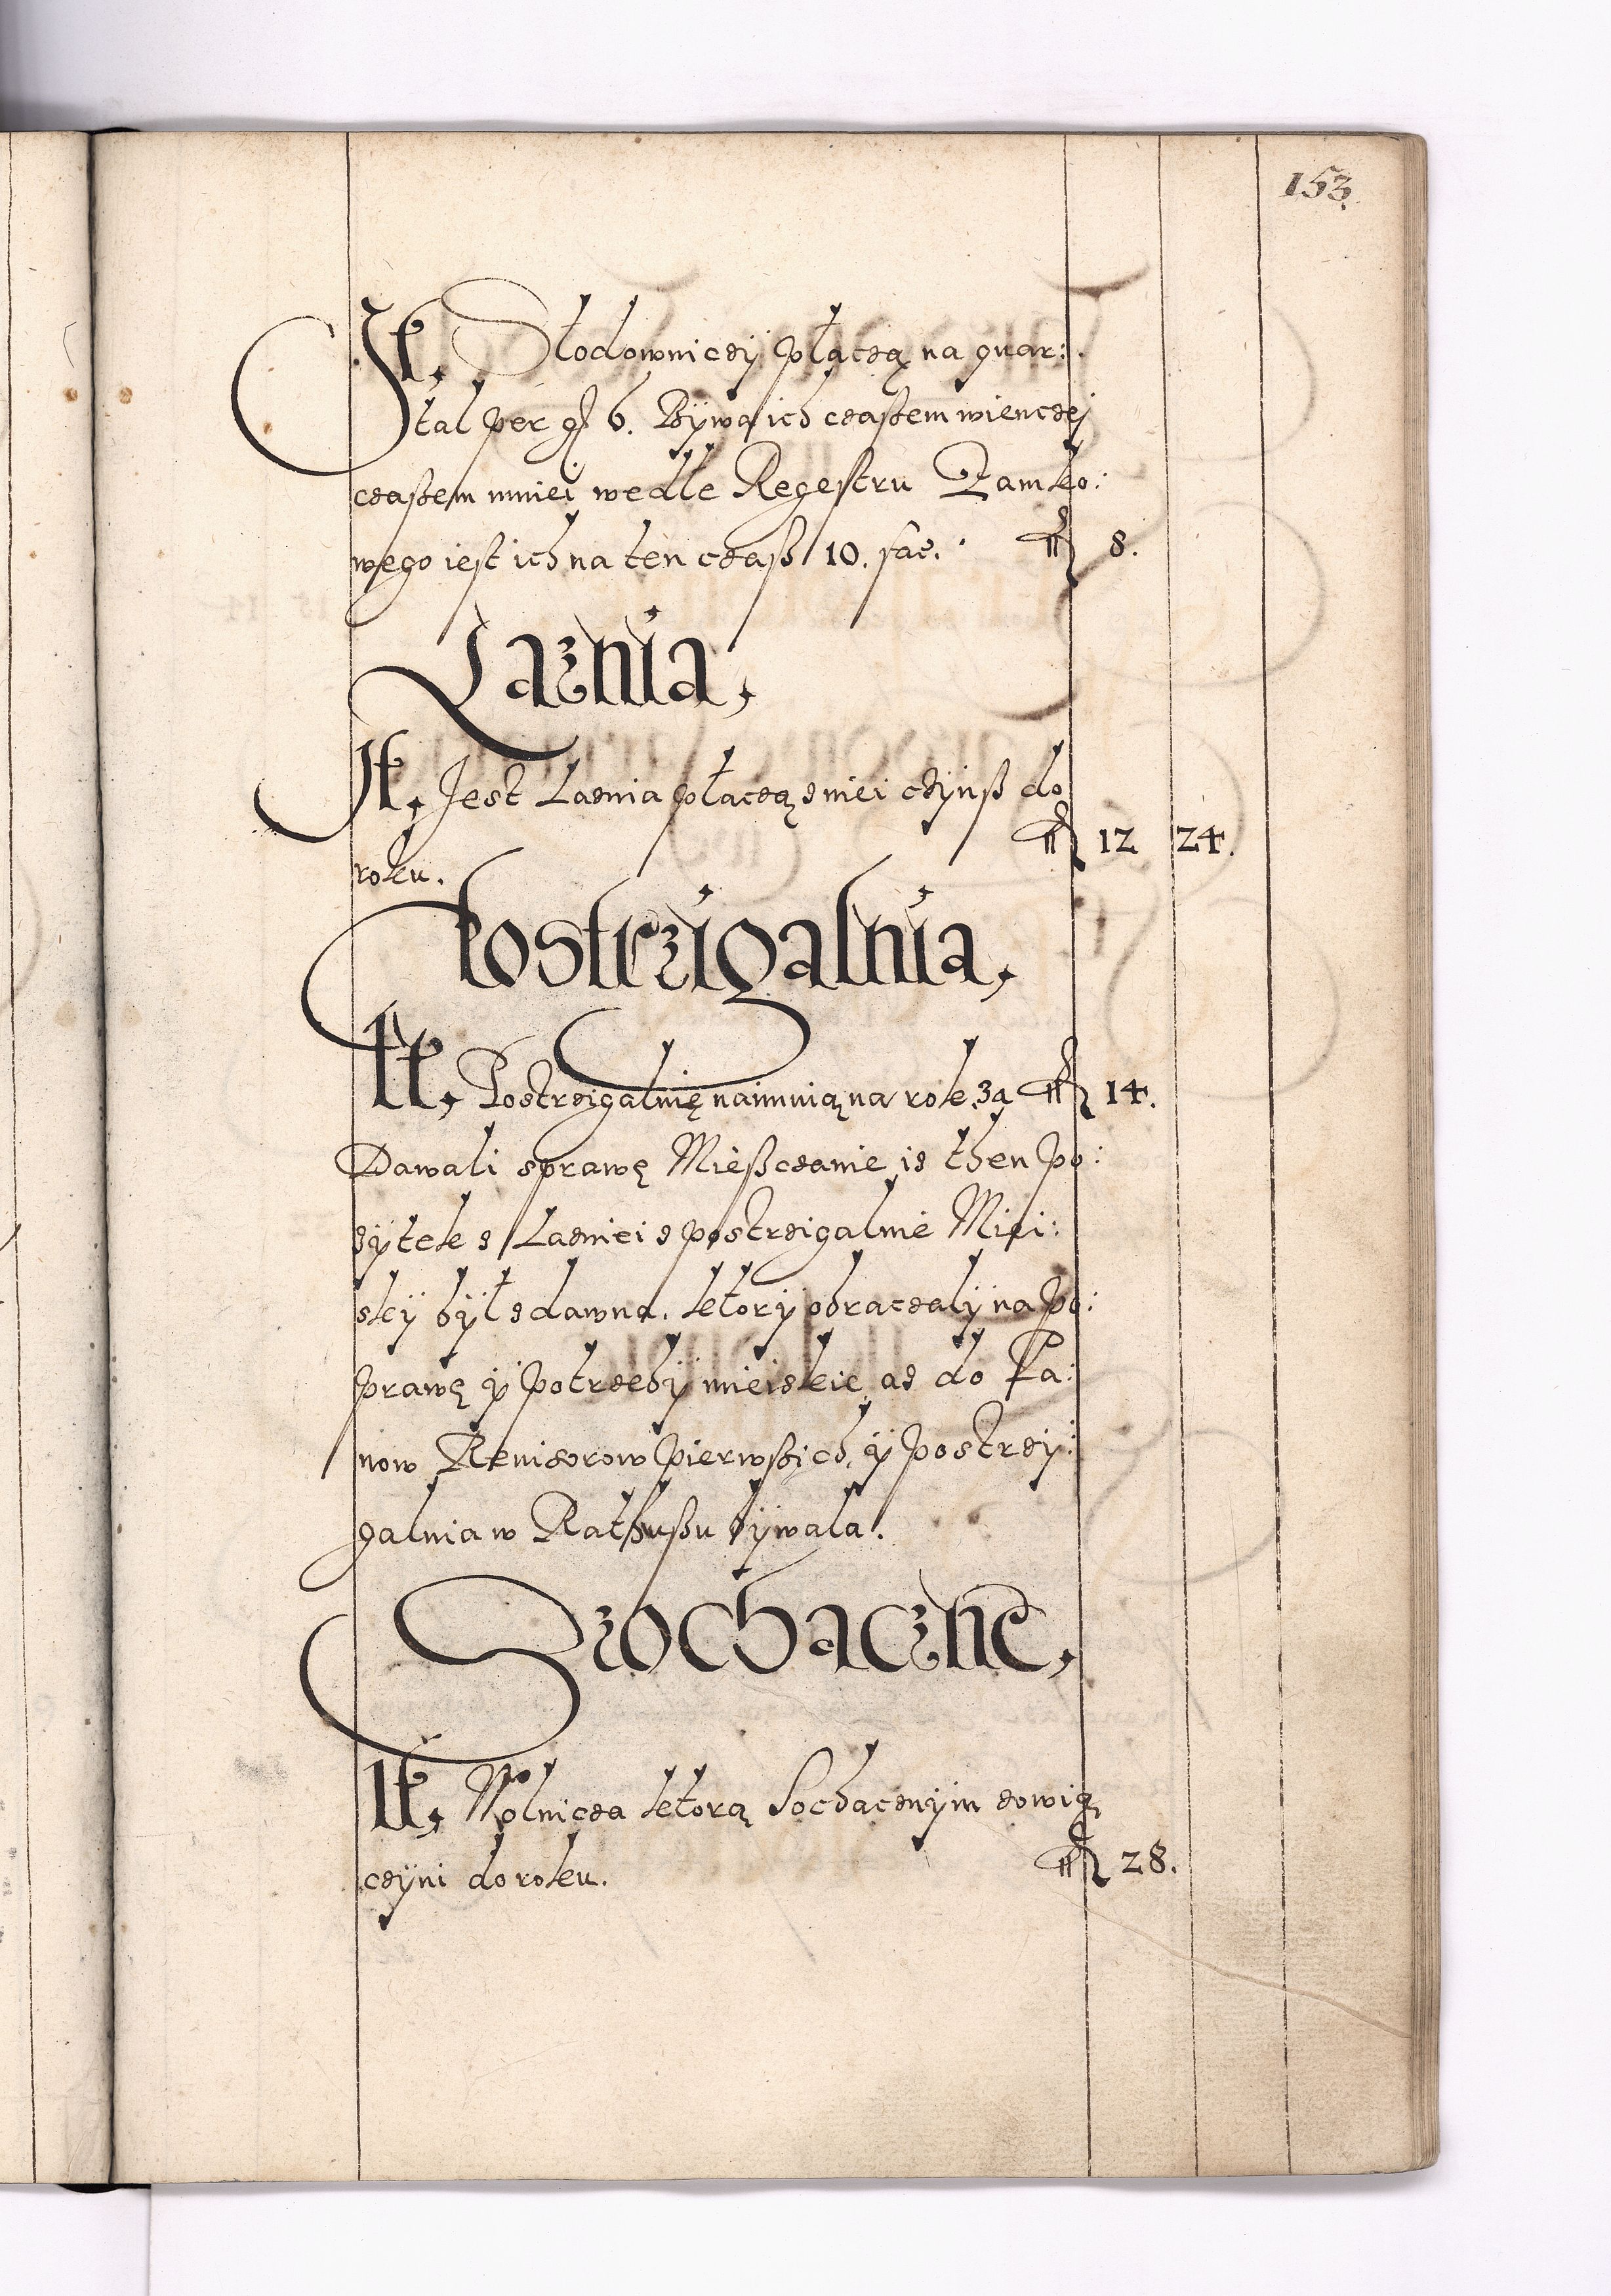 153.
It. Słodowniczÿ płaczą na quar:
tal per gs 6. Bÿwa ich czaßem wienczej
czaßem mniej wedle Regestru Zamko:
wego iest ich na ten czaß 10. fac. fl 8.
Łaznia,
It. Jest Łaznia płaczą z niei czÿnß do
roku. fl 12 24.
Postrzigalnia,
It. Postrzigalnię naimuią na rok za fl 14.
Dawali sprawę Mießczanie iz then po:
zÿtek z Łazniei z postrzigalnie Miei:
skÿ bÿł zdawna. ktorÿ obraczalÿ na po:
prawę ÿ potrzebÿ mieiskie az do Pa:
now Revisorow pierwßich, ÿ postrzÿ:
galnia w Rathußu bÿwala.
Szochaczne,
It. Wolnicza ktorą Sochacznÿm zowią
czÿni do roku. fl 28.